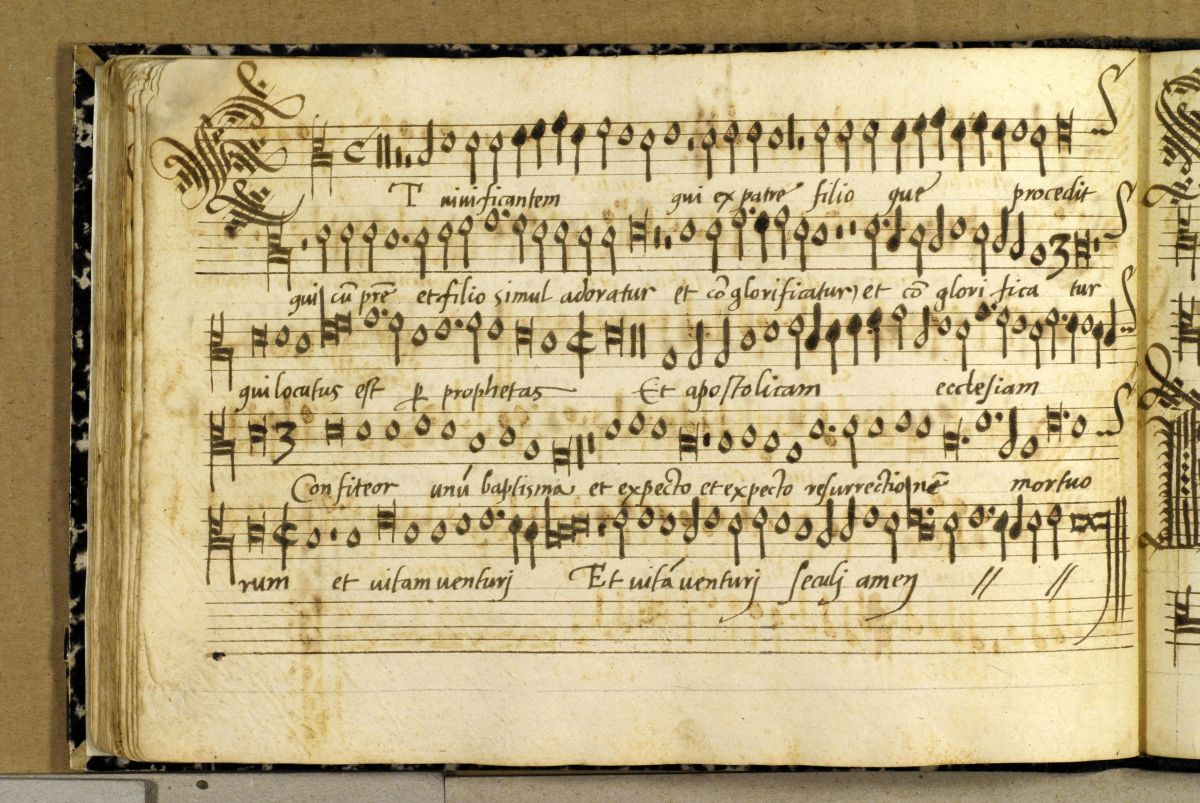 Et vivificantem qui ex patre filio que procedit
qui cū prē et filio simul adoratur et cō glorificatur) et cō glori fica tur
qui locutus est ꝑ prophetas Et apostolicam ecclesiam
Confiteor unū baptisma et expecto et expecto resurrectionē mortuo
rum et vitam venturj Et vitā venturj seculj amen // //